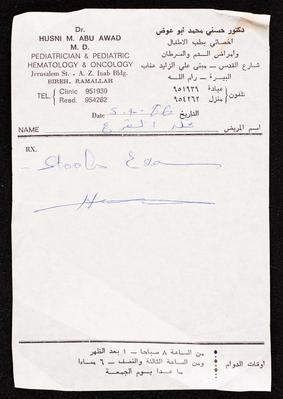 Dr.
HUSNI M. ABU AWAD
M. D.
PEDIATRICIAN & PEDIATRIC
HEMATOLOGY & ONCOLOGY
Jerusalem St. - A. Z. Inab Bldg.
BIREH, RAMALLAH
TEL. { Clinic 951939
Resd. 954262
دكتور حسني محمد ابو عوض
أخصائي بطب الاطفال
وأمراض الدم والسرطان
شارع القدس - مبنى علي الزايد عناب
البيرة - رام الله
تلفون { عيادة ٩٥١٩٣٩
منزل ٩٥٤٢٦٢
Date التاريخ
NAME اسم المريض
RX.
Stool
من الساعة ٨ صباحا - ١ بعد الظهر
اوقات الدوام : من الساعة الثالثة والنصف - ٦ مساءا
ما عدا يوم الجمعة